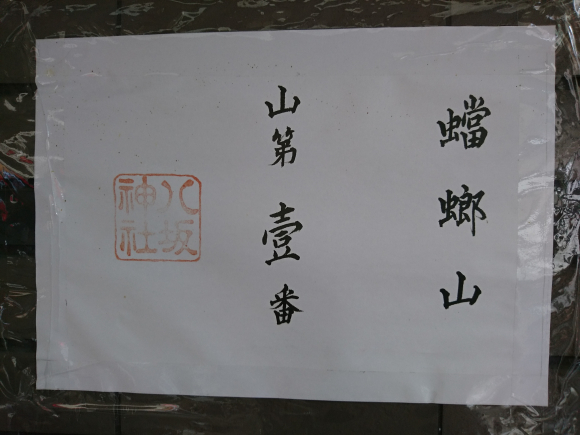 蟷螂山
山第壹番
八坂
神社